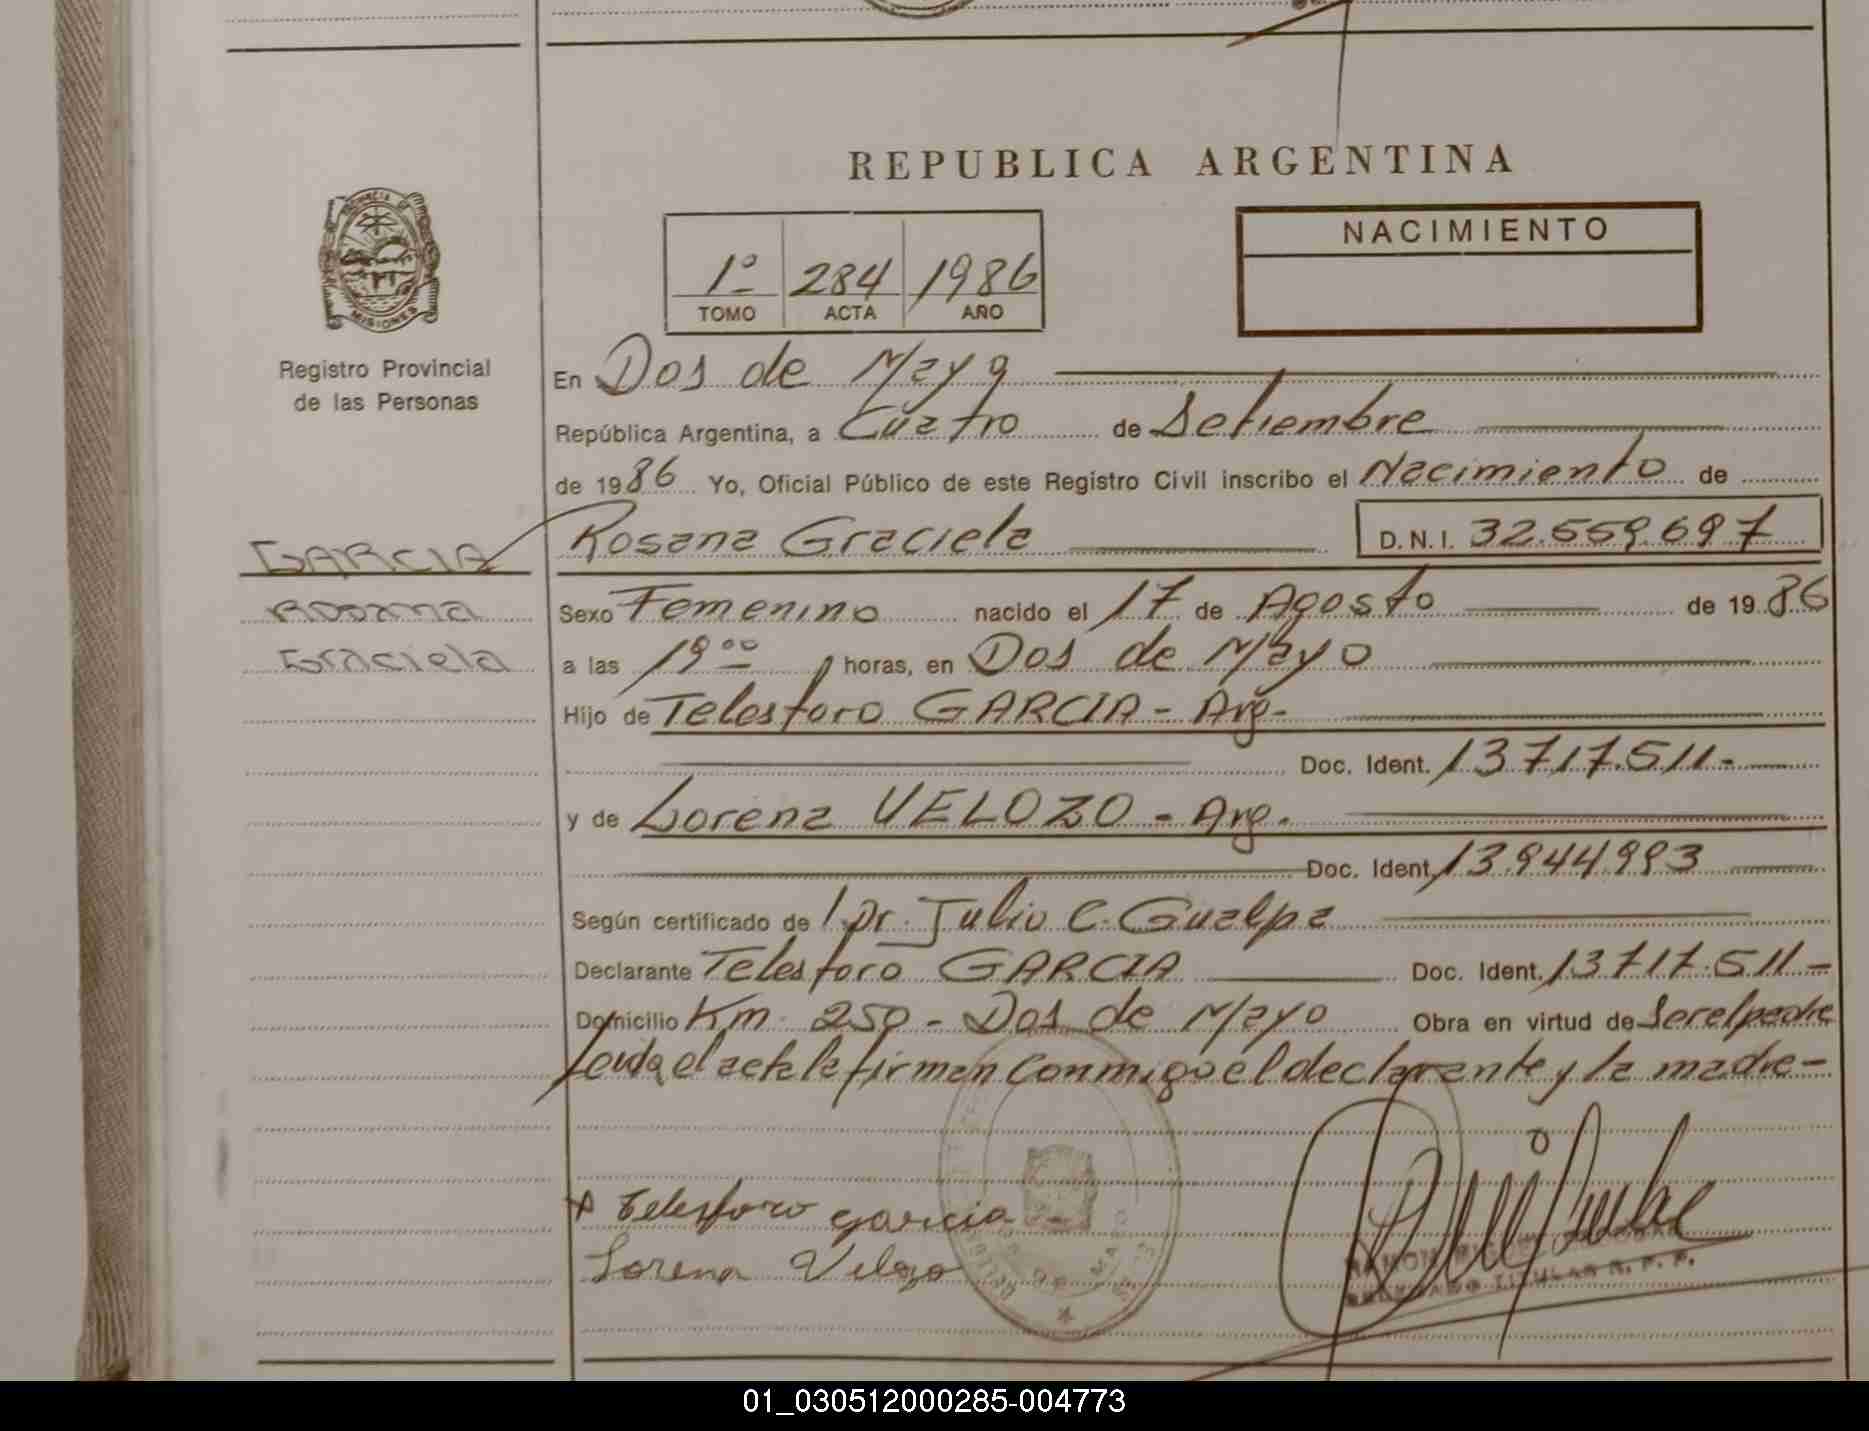 REPUBLICA ARGENTINA
PROVINCIA DE
MISIONES
Registro Provincial
de las Personas
1º 284 1986
TOMO ACTA AÑO
NACIMIENTO
En Dos de Mayo
República Argentina, a Cuatro de Setiembre
de 1986 Yo, Oficial Público de este Registro Civil inscribo el Nacimiento de
GARCIA Rosana Graciela D.N.I. 32.559.697
Rosana
Graciela
Sexo Femenino nacido el 17 de Agosto de 1986
a las 19 00 horas, en Dos de Mayo
Hijo de Telesforo GARCIA - Arg-
Doc. Ident. 13717.511-
y de Lorena VELOZO - Arg.
Doc. Ident. 13.944.993
Según certificado de Dr. Julio C. Gualpa
Declarante Telesforo GARCIA Doc. Ident. 13717.511-
Domicilio Km. 250 - Dos de Mayo Obra en virtud de Ser el padre
Leida el acta la firman conmigo el declarante y la madre-
Telesforo garcia
Lorena Velozo
TITULAR R. P. P.
01_030512000285-004773